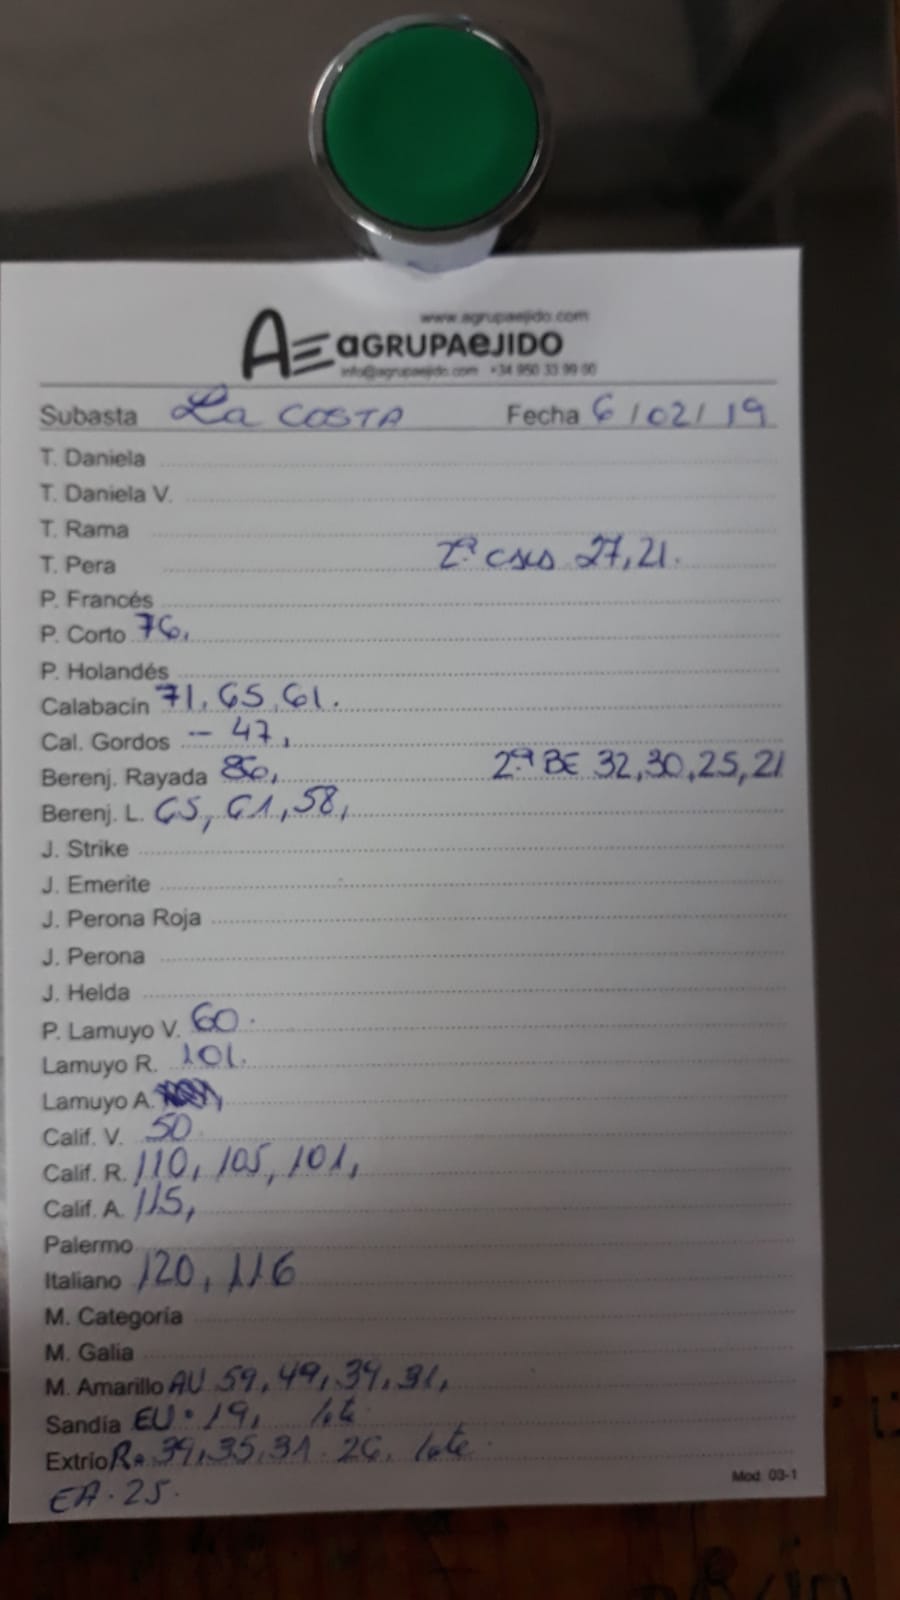 www.agrupaejido.com
AGRUPAEJIDO
info@agrupaejido.com +34 950 33 99 00
Subasta La COSTA Fecha 6/02/19
T. Daniela
T. Daniela V.
T. Rama
T. Pera 27,21.
P. Francés
P. Corto 76,
P. Holandés
Calabacin 71, 65, 61.
Cal. Gordos - 47,
Berenj. Rayada 80, 2ª BE 32,30,25,21
Berenj. L. 65, 61, 58,
J. Strike
J. Emerite
J. Perona Roja
J. Perona
J. Helda
P. Lamuyo V. 60.
Lamuyo R. 101.
Lamuyo A.
Calif. V. 50
Calif. R. 110, 105, 101,
Calif. A. 115,
Palermo
Italiano 120, 116
M. Categoría
M. Galia
M. Amarillo AU 59, 49, 39, 31,
Sandía EU. 19, lote
Extrio R. 39, 35, 31. 26, lote.
Mod. 03-1
EA. 25.